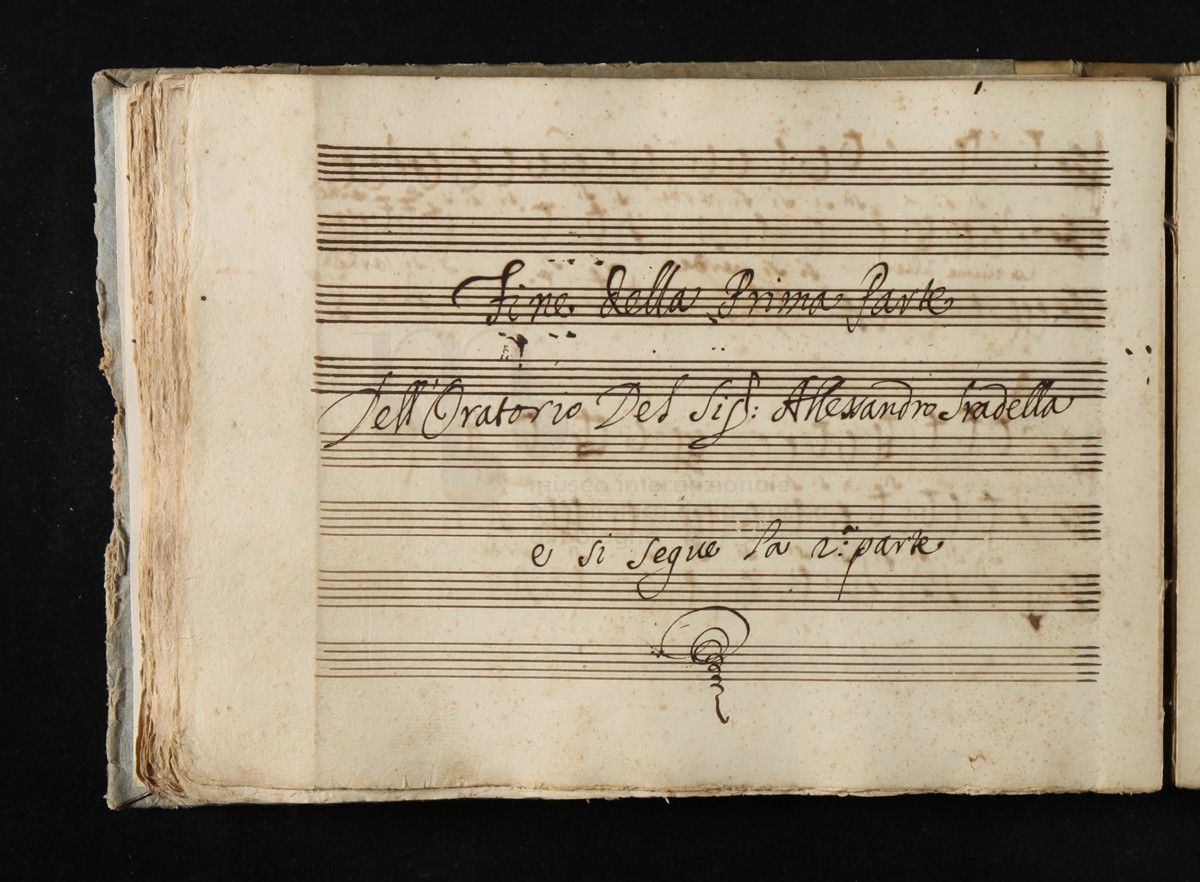 Fine della Prima Parte
Dell'Oratorio Del Sig.r: Allessandro Stradella
e si segue la 2.a parte
museo internazionale